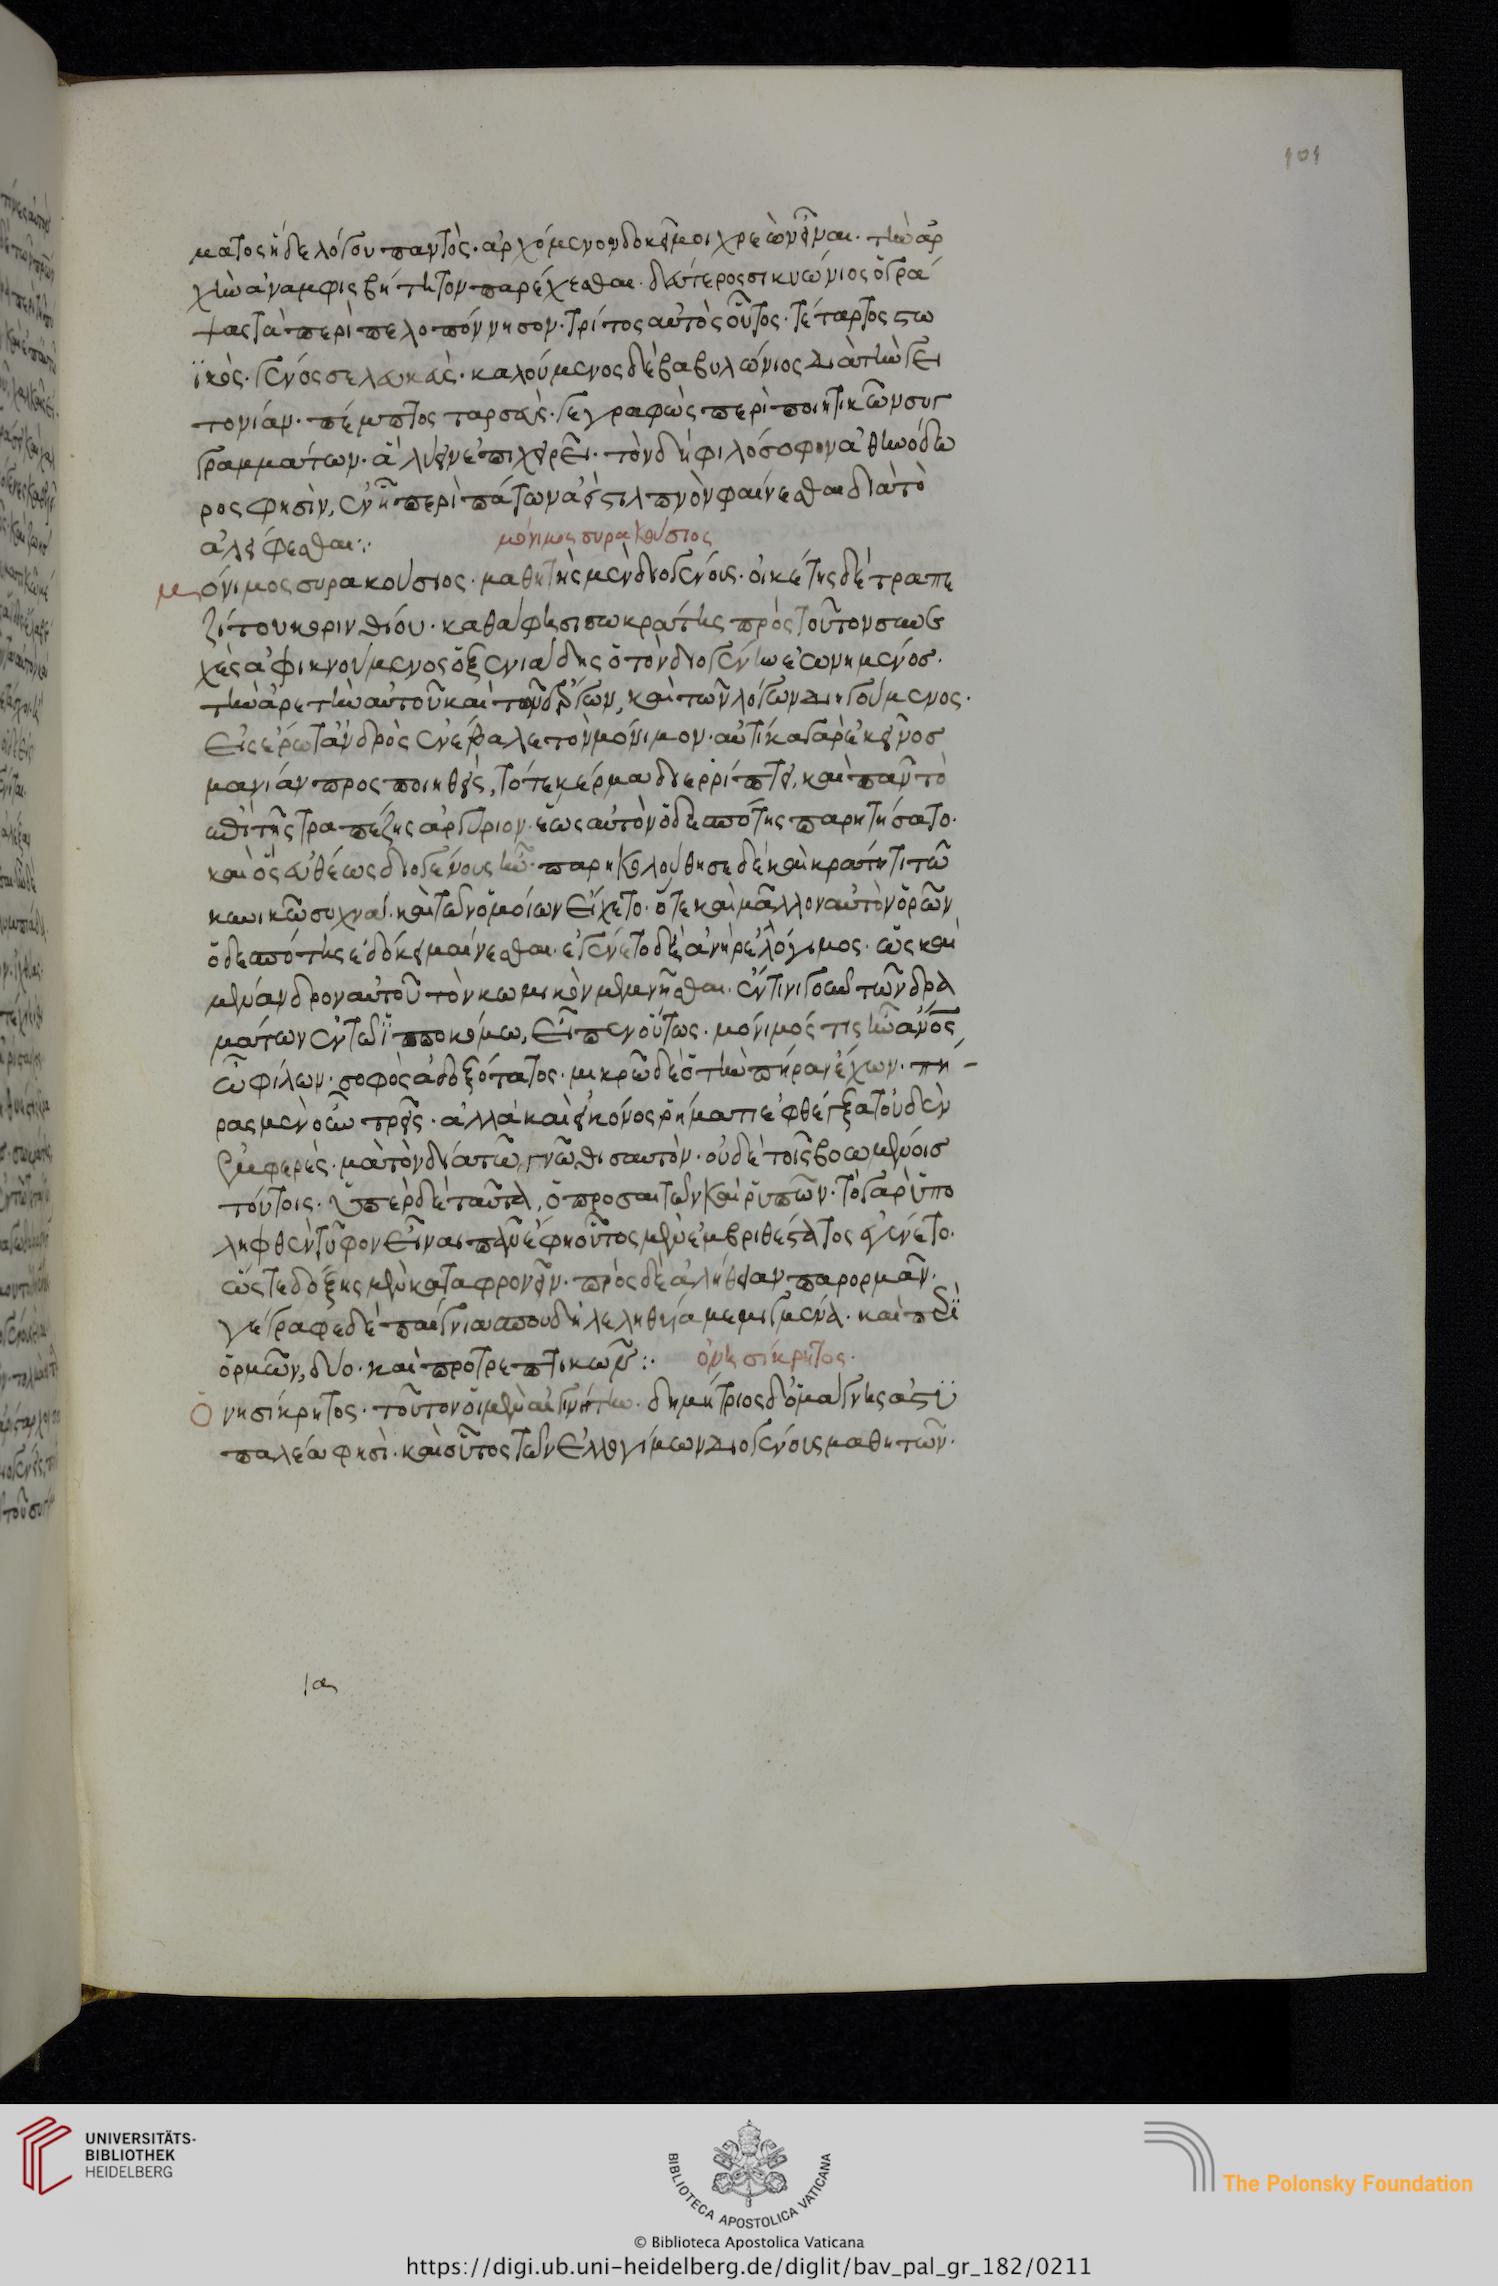 101
ματος ἥδε λόγου παντὸς· ἀρχόμενον δοκεῖ μοι χρεὼν εἶναι· τὴν ἀρ
χὴν ἀναμφισβήτητον παρέχεσθαι· δεύτερος σικυώνιος ὁ γρά
ψας τὰ περὶ πελοπόννησον· τρίτος αὐτὸς οὗτος· τέταρτος στω
ϊκὸς· γένος σελευκεὺς· καλούμενος δὲ βαβυλώνιος διὰ τὴν γει
τονίαν· πέμπτος ταρσεὺς· γεγραφὼς περὶ ποιητικῶν συγ
γραμμάτων· ἃ λύειν ἐπιχειρεῖ· τὸν δὴ φιλόσοφον ἀθηνόδω
ρος φησὶν, ἐν ἢ περὶ πάτων ἀεὶ στιλπνὸν φαίνεσθαι διὰ τὸ
ἀλείφεσθαι:·
μόνιμος συρακούσιος
μόνιμος συρακούσιος· μαθητὴς μὲν διογένους· οἰκέτης δέ τραπε
ζίτου κορινθίου· καθά φησι σωκράτης πρὸς τοῦτον συνε
χὲς ἀφικνούμενος ὁ ξενιάδης ὁ τὸν διογένην ἐωνημένος·
τὴν ἀρετὴν αὐτοῦ καὶ τῶν ἔργων, καὶ τῶν λόγων διηγούμενος·
εἰς ἔρωτ' ἀνδρὸς ἐνέβαλε τὸν μόνιμον· αὐτίκα γὰρ ἐκεῖνος
μανίαν προσποιηθεὶς, τότε κέρμα διερρίπτει, καὶ πᾶν τὸ
ἐπὶ τῆς τραπέζης ἀργύριον· ἕως αὐτὸν ὁ δεσπότης παρητήσατο·
καὶ ὃς εὐθέως διογένους ἦν· παρηκολούθησε δὲ καὶ κράτητι τῶ
κυνικῶ συχνά· καὶ τῶν ὁμοίων εἴχετο· ὅτε καὶ μᾶλλον αὐτὸν ὁρῶν
ὁ δεσπότης ἐδόκει μαίνεσθαι· ἐγένετο δὲ ἀνὴρ ἐλλόγιμος· ὡς καὶ
μένανδρον αὐτοῦ τὸν κωμικὸν μεμνῆσθαι· ἔν τινι γοῦν τῶν δρα
μάτων ἐν τῶ ἱπποκόμω, εἶπεν οὕτως· μόνιμός τις ἦν ἄνος
ὦ φίλων· σοφὸς ἀδοξότατος· μικρῶ δὲ ὁ τὴν πήραν ἔχων· πή
ρας μὲν οὖν τρεῖς· ἀλλὰ καὶ εἰκόνος ῥῆμά τι ἐφθέγξατ' οὐδὲν
ἐμφερὲς· μὰ τὸν δία τῶ, γνῶθι σαυτὸν· οὐδὲ τοῖς βοωμένοις
τούτοις· ὑπὲρ δὲ ταῦτα, ὁ προσαιτῶν καὶ ῥυπῶν· τὸ γὰρ ὑπο
ληφθὲν τῦφον εἶναι πᾶν ἔφη οὗτος μὲν ἐμβριθέστατος ἐγένετο·
ὥστε δόξης μὲν καταφρονεῖν· πρὸς δὲ ἀλήθειαν παρορμᾶν·
γέγραφε δὲ παίγνια σπουδῆ λεληθυῖα μεμιγμένα· καὶ περὶ
ὁρμῶν, δύο· καὶ προτρεπτικὸν:· ὀνησίκριτος·
Ὀνησίκριτος· τοῦτον οἱ μὲν αἰγινήτην· δημήτριος δ' ὁ μάγνης ἀστυ
παλεά φησὶ· καὶ οὗτος τῶν ἐλλογίμων διογένους μαθητῶν·
ια
UNIVERSITÄTS-
BIBLIOTHEK
HEIDELBERG
BIBLIOTECA APOSTOLICA VATICANA
The Polonsky Foundation
© Biblioteca Apostolica Vaticana
https://digi.ub.uni-heidelberg.de/diglit/bav_pal_gr_182/0211